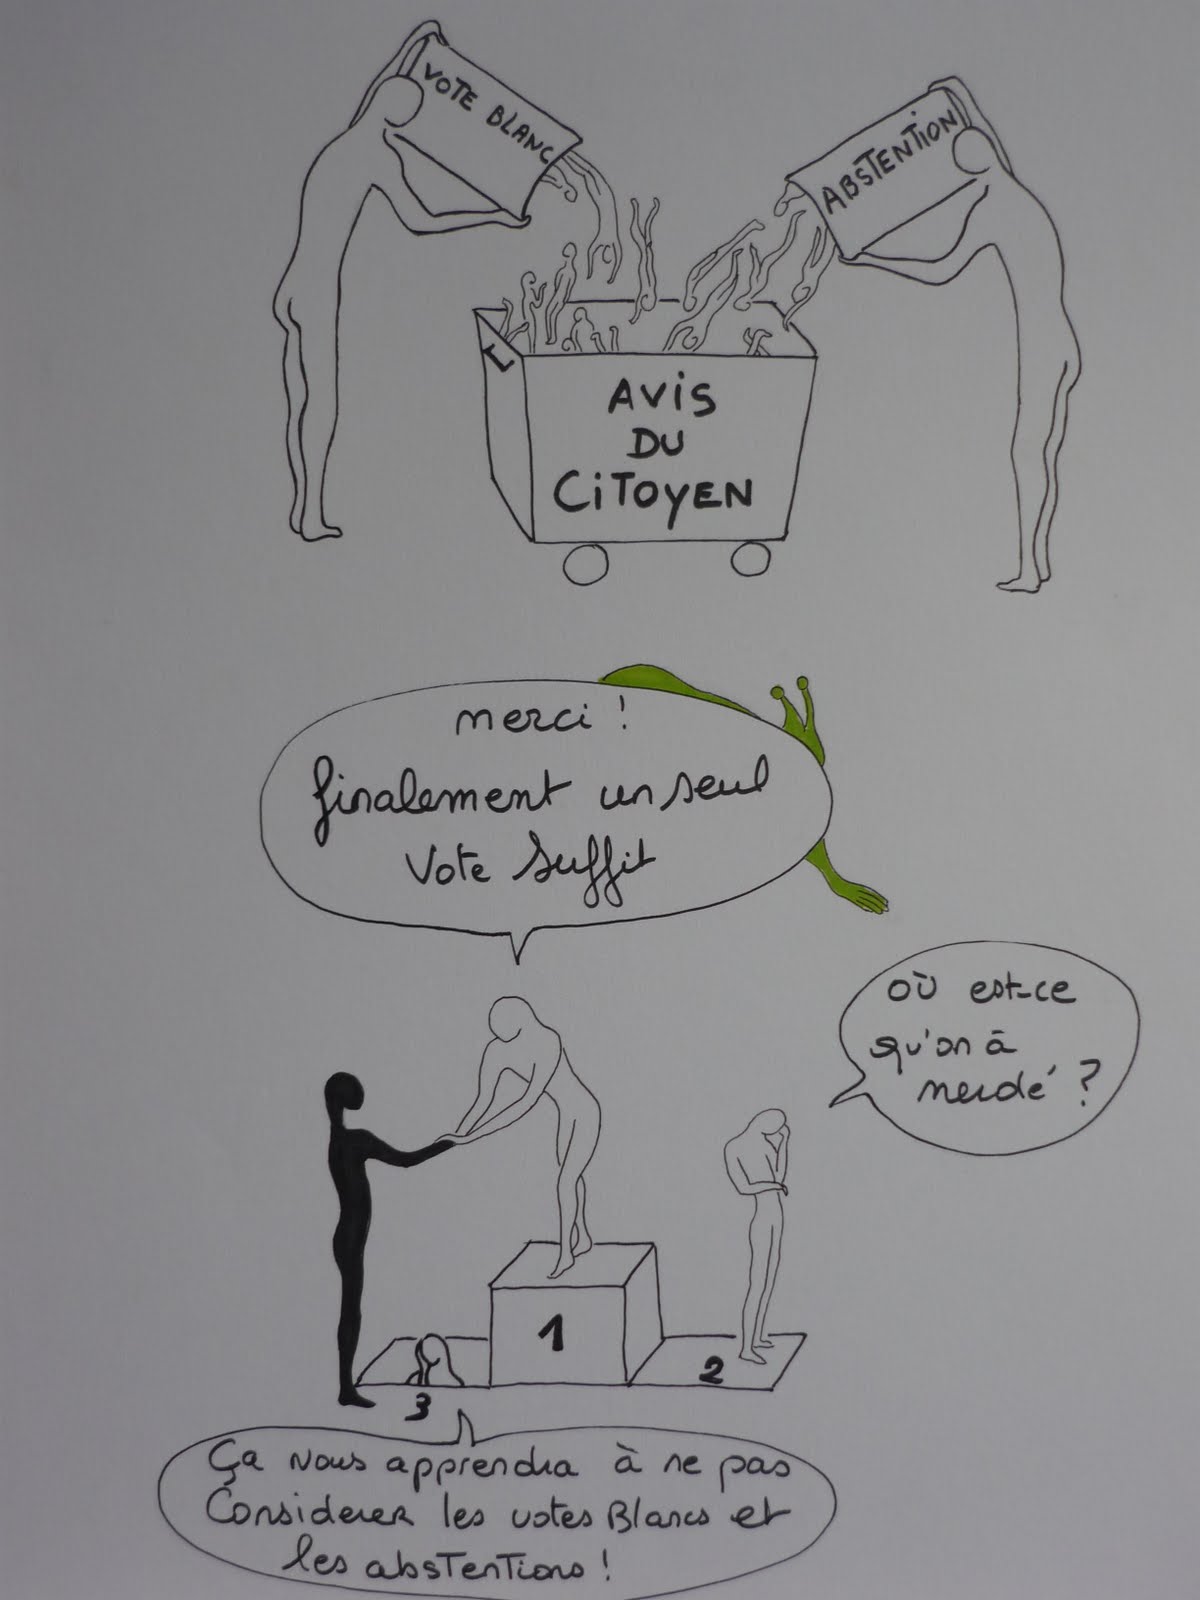 VOTE BLANC
ABSTENTION
AVIS
DU
CiTOYEN
merci !
finalement un seul
Vote suffit
où est-ce
qu'on à
merdé ?
1
2
3
Ça nous apprendra à ne pas
Considerer les votes Blancs et
les abstentions !